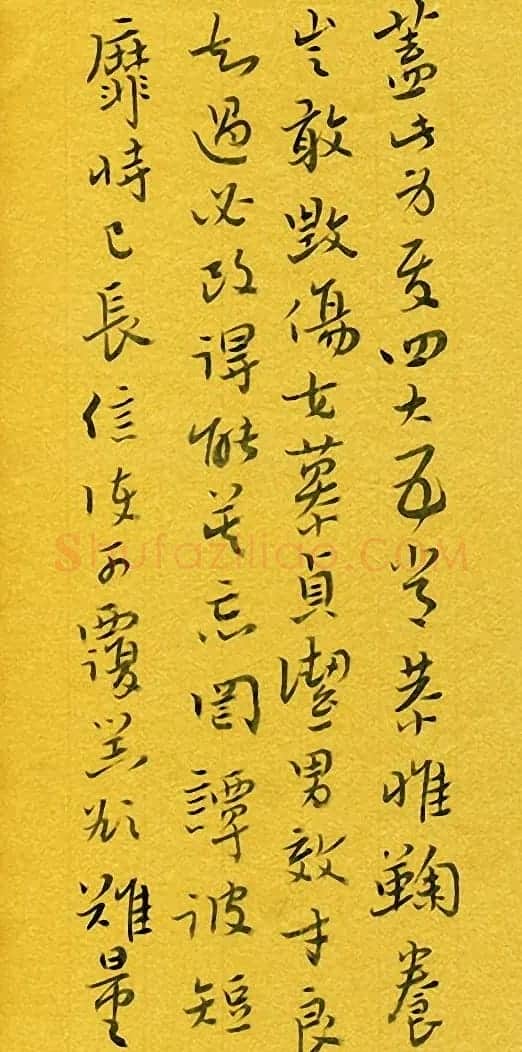 蓋此身發四大五常恭惟鞠養
豈敢毀傷女慕貞潔男效才良
知過必改得能莫忘罔譚彼短
靡恃己長信使可覆器欲難量
Shufaziliao.COM